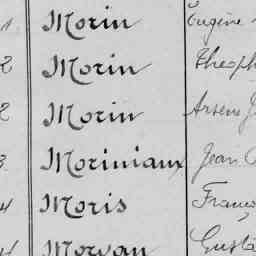 1 Morin Eugène
2 Morin Théoph
2 Morin Arsène J
3 Moriniaux Jean
4 Moris Franç
4 Morvan Gusta